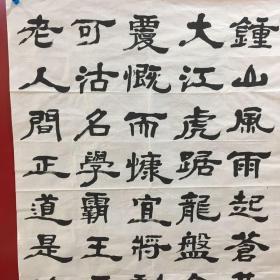 鍾山風雨起蒼
大江虎踞龍盤
覆慨而慷宜將
可沽名學霸王
老人間正道是